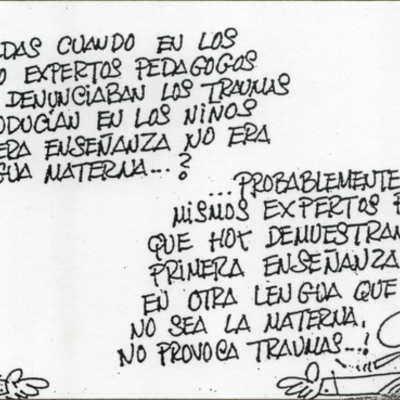 DAS CUANDO EN LOS
O EXPERTOS PEDAGOGOS
DENUNCIABAN LOS TRAUMAS
ODUCÍAN EN LOS NIÑOS
ERA ENSEÑANZA NO ERA
GUA MATERNA...?
...PROBABLEMENTE
MISMOS EXPERTOS P
QUE HOY DEMUESTRAN
PRIMERA ENSEÑANZA
EN OTRA LENGUA QUE
NO SEA LA MATERNA,
NO PROVOCA TRAUMAS...!